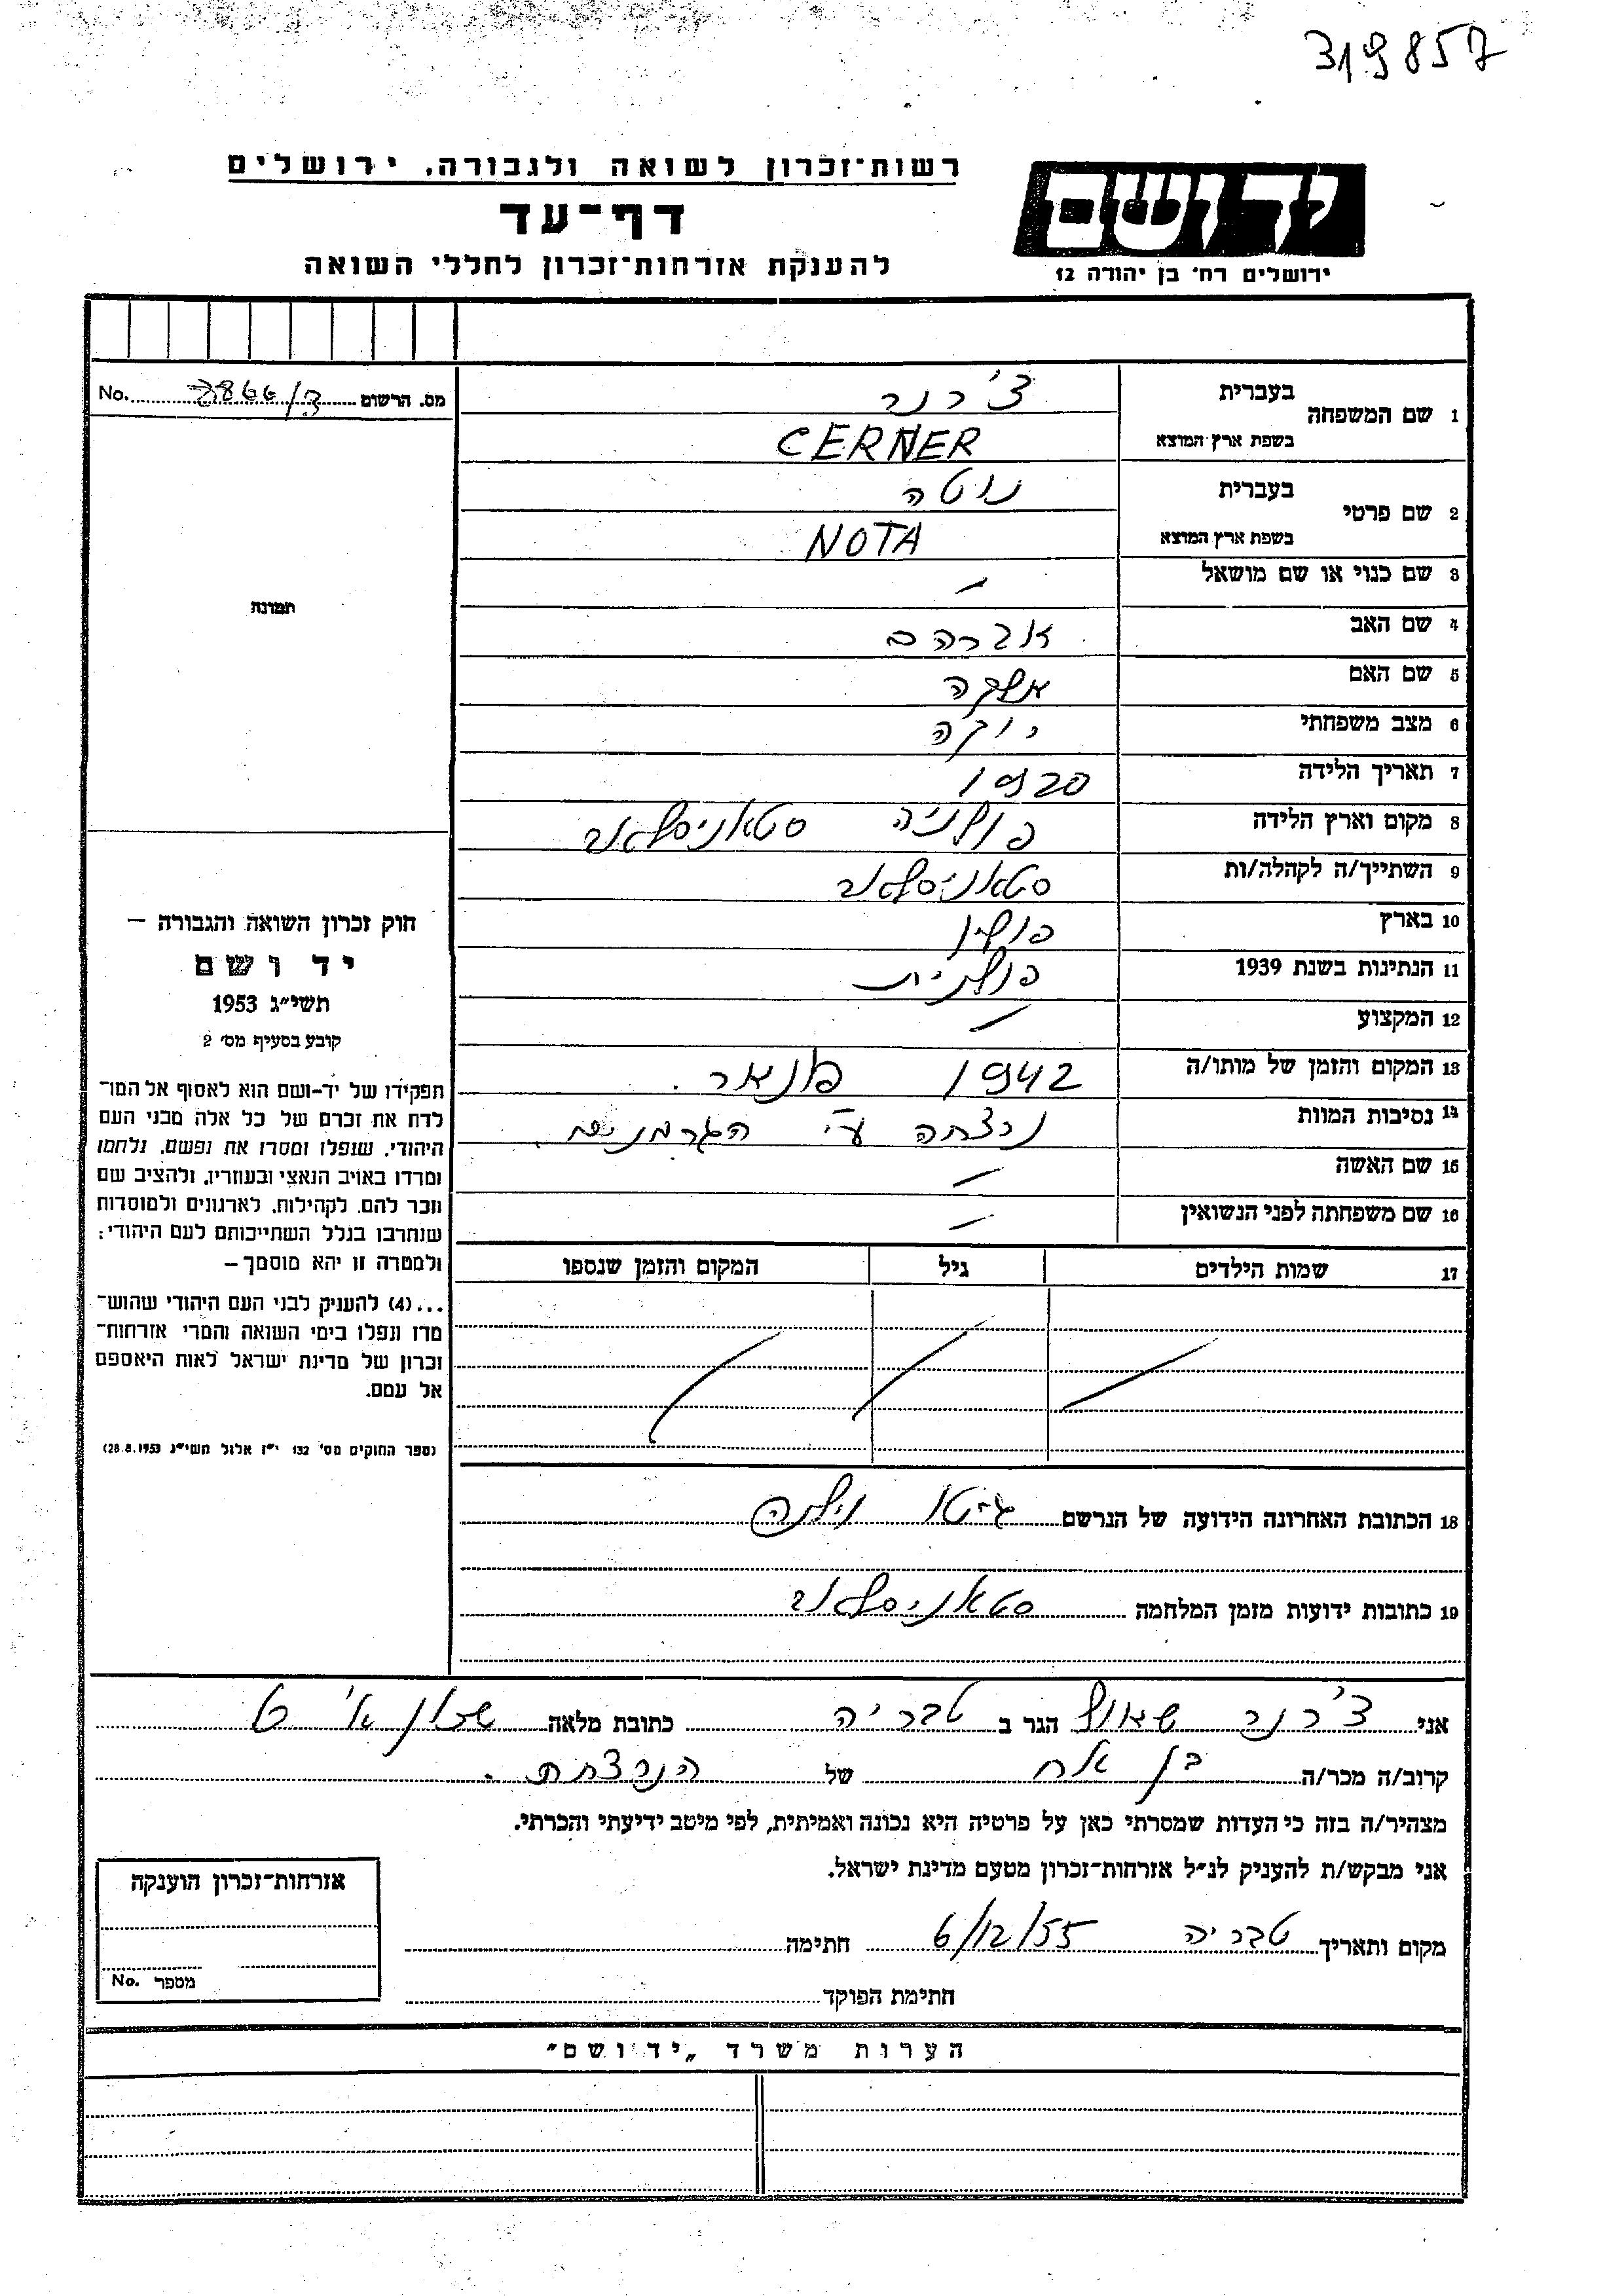 319857
רשות־זכרון לשואה ולגבורה, ירושלים
דף־עד
להענקת אזרחות־זכרון לחללי השואה
יד ושם
ירושלים רח' בן יהודה 12
No. מס. הרשום
תמונה
חוק זכרון השואה והגבורה —
יד ושם
תשי״ג 1953
קובע בסעיף מס׳ 2
תפקידו של יד-ושם הוא לאסוף אל המו־
לדת את זכרם של כל אלה מבני העם
היהודי, שנפלו ומסרו את נפשם, נלחמו
ומרדו באויב הנאצי ובעוזריו, ולהציב שם
וזכר להם, לקהילות, לארגונים ולמוסדות
שנחרבו בגלל השתייכותם לעם היהודי;
ולמטרה זו יהא מוסמך —
...(4) להעניק לבני העם היהודי שהוש־
מדו ונפלו בימי השואה והמרי אזרחות־
זכרון של מדינת ישראל לאות היאספם
אל עמם.
(ספר החוקים מס׳ 132 י״ז אלול תשי״ג 28.8.1953)
1 שם המשפחה בעברית צ'רנר
בשפת ארץ המוצא CERNER
2 שם פרטי בעברית נוטה
בשפת ארץ המוצא NOTA
3 שם כנוי או שם מושאל —
4 שם האב אברהם
5 שם האם
6 מצב משפחתי
7 תאריך הלידה 1920
8 מקום וארץ הלידה פולניה סטאניסלאב
9 השתייך/ה לקהלה/ות סטאניסלאב
10 בארץ פולין
11 הנתינות בשנת 1939 פולנית
12 המקצוע —
13 המקום והזמן של מותו/ה 1942 פונאר.
14 נסיבות המוות נרצחה ע״י הגרמנים.
15 שם האשה —
16 שם משפחתה לפני הנשואין —
17 שמות הילדים גיל המקום והזמן שנספו
18 הכתובת האחרונה הידועה של הנרשם גיטו וילנה
19 כתובות ידועות מזמן המלחמה סטאניסלאב
אני צ'רנר שאול הגר ב טבריה כתובת מלאה שכון א' 6
קרוב/ה מכר/ה בן אח של הנרצחת.
מצהיר/ה בזה כי העדות שמסרתי כאן על פרטיה היא נכונה ואמיתית, לפי מיטב ידיעתי והכרתי.
אני מבקש/ת להעניק לנ״ל אזרחות־זכרון מטעם מדינת ישראל.
מקום ותאריך טבריה 6/12/55 חתימה
חתימת הפוקד
אזרחות־זכרון הוענקה
No. מספר
הערות משרד „יד ושם״